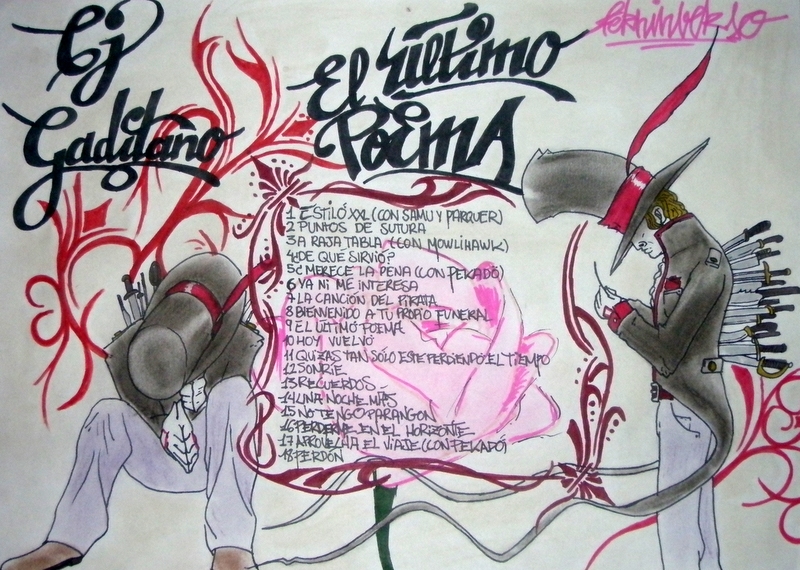 Cj
Gaditano
El último
Poema
1 ESTILO XXL (CON SAMU Y PARQUER)
2 PUNTOS DE SUTURA
3 A RAJA TABLA (CON MOWLIHAWK)
4 DE QUE SIRVIÓ?
5 ¿MERECE LA PENA (CON PEKADO)
6 YA NI ME INTERESA
7 LA CANCIÓN DEL PIRATA
8 BIENVENIDO A TU PROPIO FUNERAL
9 EL ÚLTIMO POEMA
10 HOY VUELVO
11 QUIZAS TAN SOLO ESTE PERDIENDO EL TIEMPO
12 SONRIE
13 RECUERDOS
14 UNA NOCHE MAS
15 NO TENGO PARANGON
16 PERDERME EN EL HORIZONTE
17 APROVECHA EL VIAJE (CON PEKADO)
18 PERDÓN